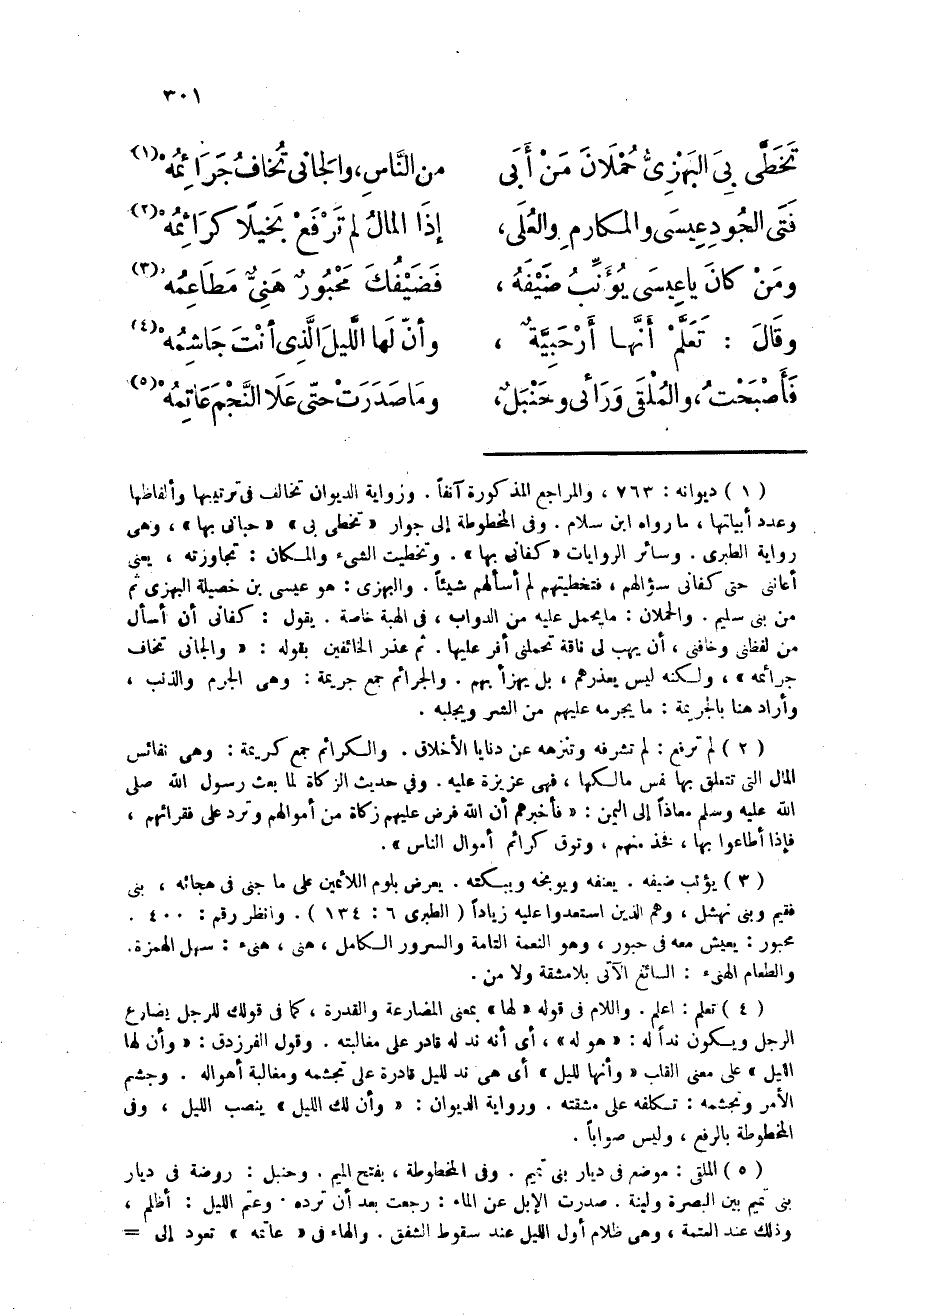 ٣٠١
تَخَطَّى بِيَ البَهْزِىُّ حُمْلَانَ مَنْ أَبَى من النَّاسِ، والجَانى تُخافُ جَرَائِمُهْ (١)
فَتَى الجُودِ عِيسَى والمكارِمِ والعُلَى، إذَا المَالُ لم تَرْفَعْ بَخيلًا كرَائمُهْ (٢)
ومَنْ كانَ ياعِيسَى يُؤَنِّبُ ضَيْفَهُ، فَضَيْفُكَ مَحْبُورٌ هَنِىٌّ مَطَاعِمُه (٣)
وقَالَ : تَعَلَّمْ أَنَّهَا أَرْحَبِيَّةٌ، وأنّ لَها اللَّيلَ الَّذِى أنْتَ جَاشِمُهْ (٤)
فَأَصْبَحْتُ، والمُلْقَى وَرَائى وحَنْبَلٌ، ومَا صَدَرَتْ حتّى عَلَا النَّجْمَ عَاتِمُهْ (٥)
( ١ ) ديوانه : ٧٦٣ ، والمراجع المذكورة آنفاً . ورواية الديوان تخالف فى ترتيبها وألفاظها
وعدد أبياتها ، ما رواه ابن سلام . وفى المخطوطة إلى جوار « تخطى بى » « حبانى بها » ، وهى
رواية الطبرى . وسائر الروايات « كفانى بها » . وتخطيت الشىء والمكان : تجاوزته ، يعنى
أعاننى حتى كفانى سؤالهم ، فتخطيتهم لم أسألهم شيئاً . والبهزى : هو عيسى بن خصيلة البهزى ثم
من بنى سليم . والحملان : مايحمل عليه من الدواب ، فى الهبة خاصة . يقول : كفانى أن أسأل
من لفظنى وخافنى ، أن يهب لى ناقة تحملنى أفر عليها . ثم عذر الخائفين بقوله : « والجانى تخاف
جرائمه » ، ولكنه ليس يعذرهم ، بل يهزأ بهم . والجرائم جمع جريمة : وهى الجرم والذنب ،
وأراد هنا بالجريمة : ما يجرمه عليهم من الشر ويجلبه .
( ٢ ) لم ترفع : لم تشرفه وتنزهه عن دنايا الأخلاق . والكرائم جمع كريمة : وهى نفائس
المال التى تتعلق بها نفس مالكها ، فهى عزيزة عليه . وفي حديث الزكاة لما بعث رسول الله صلى
الله عليه وسلم معاذاً إلى اليمن : « فأخبرهم أن الله فرض عليهم زكاة من أموالهم وترد على فقرائهم ،
فإذا أطاعوا بها ، فخذ منهم ، وتوق كرائم أموال الناس » .
( ٣ ) يؤنب ضيفه . يعنفه ويوبخه ويبكته . يعرض بلوم اللائمين على ما جنى فى هجائه ، بنى
فقيم وبنى نهشل ، وهم الذين استعدوا عليه زياداً ( الطبرى ٦ : ١٣٤ ) . وانظر رقم : ٤٠٠ .
محبور : يعيش معه فى حبور ، وهو النعمة التامة والسرور الكامل ، هنى ، هنىء : سهل الهمزة .
والطعام الهنىء : السائغ الآتى بلا مشقة ولا من .
( ٤ ) تعلم : اعلم . واللام فى قوله « لها » بمعنى المضارعة والقدرة ، كما فى قولك للرجل يضارع
الرجل ويكون نداً له : « هو له » ، أى أنه ند له قادر على مغالبته . وقول الفرزدق : « وأن لها
الليل » على معنى القلب « وأنها لليل » أى هى ند لليل قادرة على تجشمه ومغالبة أهواله . وجشم
الأمر وتجشمه : تكلفه على مشقته . ورواية الديوان : « وأن لك الليل » ينصب الليل ، وفى
المخطوطة بالرفع ، وليس صواباً .
( ٥ ) الملقى : موضع فى ديار بنى تميم . وفى المخطوطة ، بفتح الميم . وحنبل : روضة فى ديار
بنى تميم بين البصرة ولينة . صدرت الإبل عن الماء : رجعت بعد أن ترده . وعتم الليل : أظلم ،
وذلك عند العتمة ، وهى ظلام أول الليل عند سقوط الشفق . والهاء فى « عاتمه » تعود إلى =